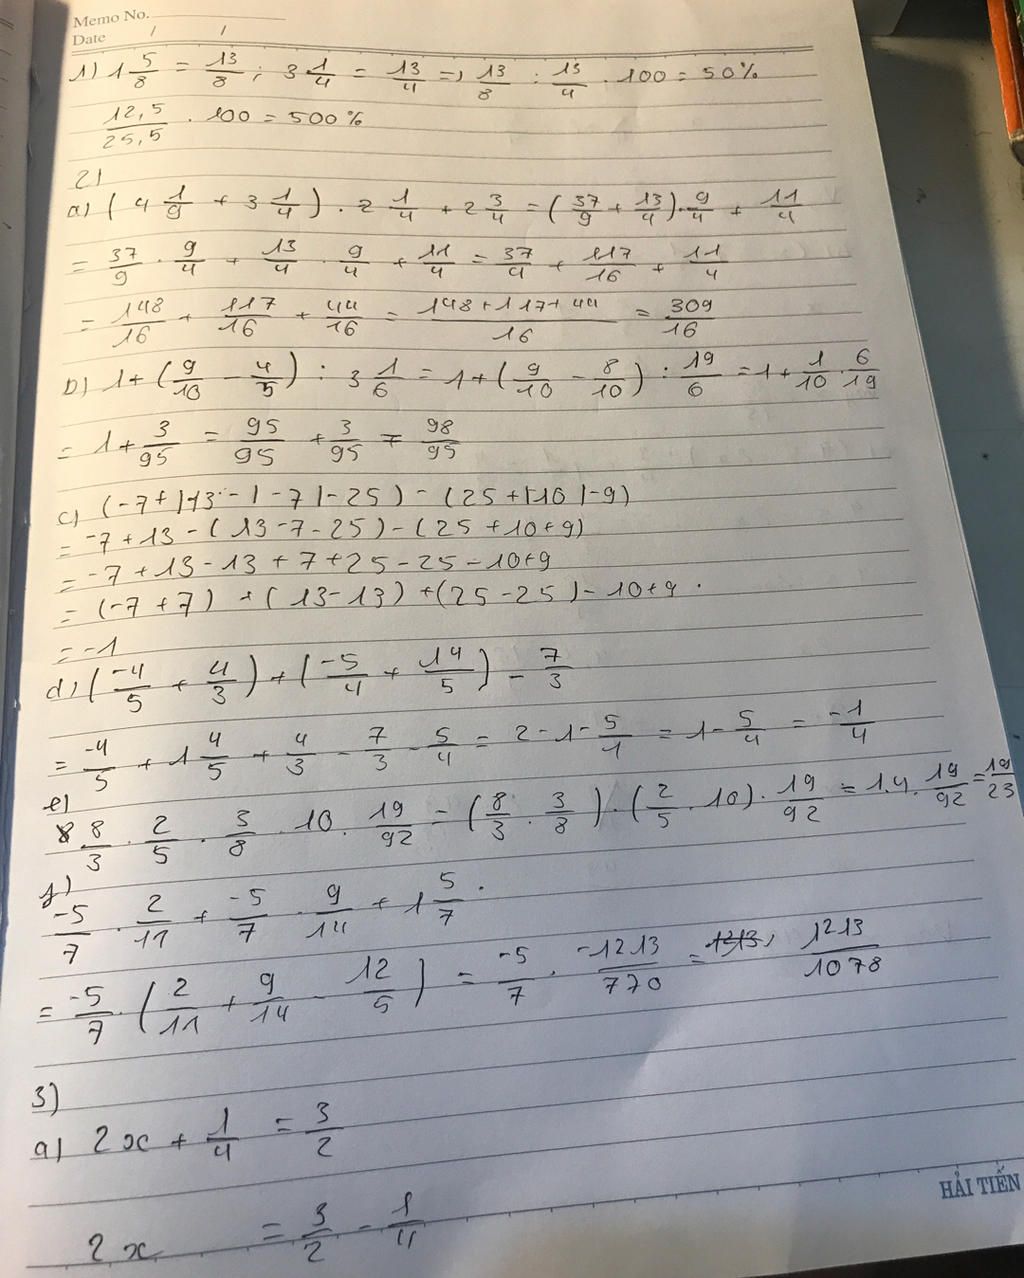 Memo No.
Date / /
1) 1 5/8 = 13/8 ; 3 1/4 = 13/4 => 13/8 : 13/4 . 100 = 50%
12,5/25,5 . 100 = 500%
2)
a) (4 1/9 + 3 1/4) . 2 1/4 + 2 3/4 = (37/9 + 13/4) . 9/4 + 11/4
= 37/9 . 9/4 + 13/4 . 9/4 + 11/4 = 37/4 + 117/16 + 11/4
= 148/16 + 117/16 + 44/16 = 148+117+44/16 = 309/16
b) 1 + (9/10 - 4/5) : 3 1/6 = 1 + (9/10 - 8/10) : 19/6 = 1 + 1/10 . 6/19
= 1 + 3/95 = 95/95 + 3/95 = 98/95
c) (-7 + |13 - |-7| - 25) - (25 + |-10| - 9)
= -7 + 13 - (13 - 7 - 25) - (25 + 10 + 9)
= -7 + 13 - 13 + 7 + 25 - 25 - 10 + 9
= (-7 + 7) + (13 - 13) + (25 - 25) - 10 + 9 .
= -1
d) (-4/5 + 4/3) + (-5/4 + 14/5) - 7/3
= -4/5 + 1 4/5 + 4/3 - 7/3 - 5/4 = 2 - 1 - 5/1 = 1 - 5/4 = -1/4
e)
8/3 . 2/5 . 3/8 . 10 . 19/92 = (8/3 . 3/8) . (2/5 . 10) . 19/92 = 1.4 . 19/92 = 19/23
f)
-5/7 . 2/11 + -5/7 . 9/14 + 1 5/7 .
= -5/7 . (2/11 + 9/14 - 12/5) = -5/7 . -1213/770 = 1213/1078
3)
a) 2x + 1/4 = 3/2
2x = 3/2 - 1/4
HẢI TIẾN